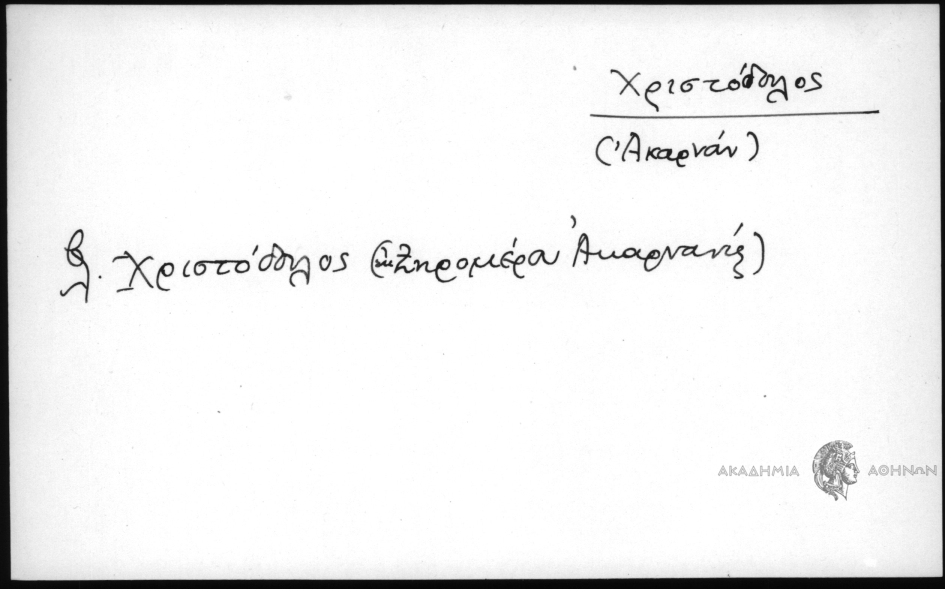 Χριστόδουλος
(Ἀκαρνάν)
βλ. Χριστόδουλος (ἐκ Ξηρομέρου Ἀκαρνανίας)
ΑΚΑΔΗΜΙΑ ΑΘΗΝΩΝ